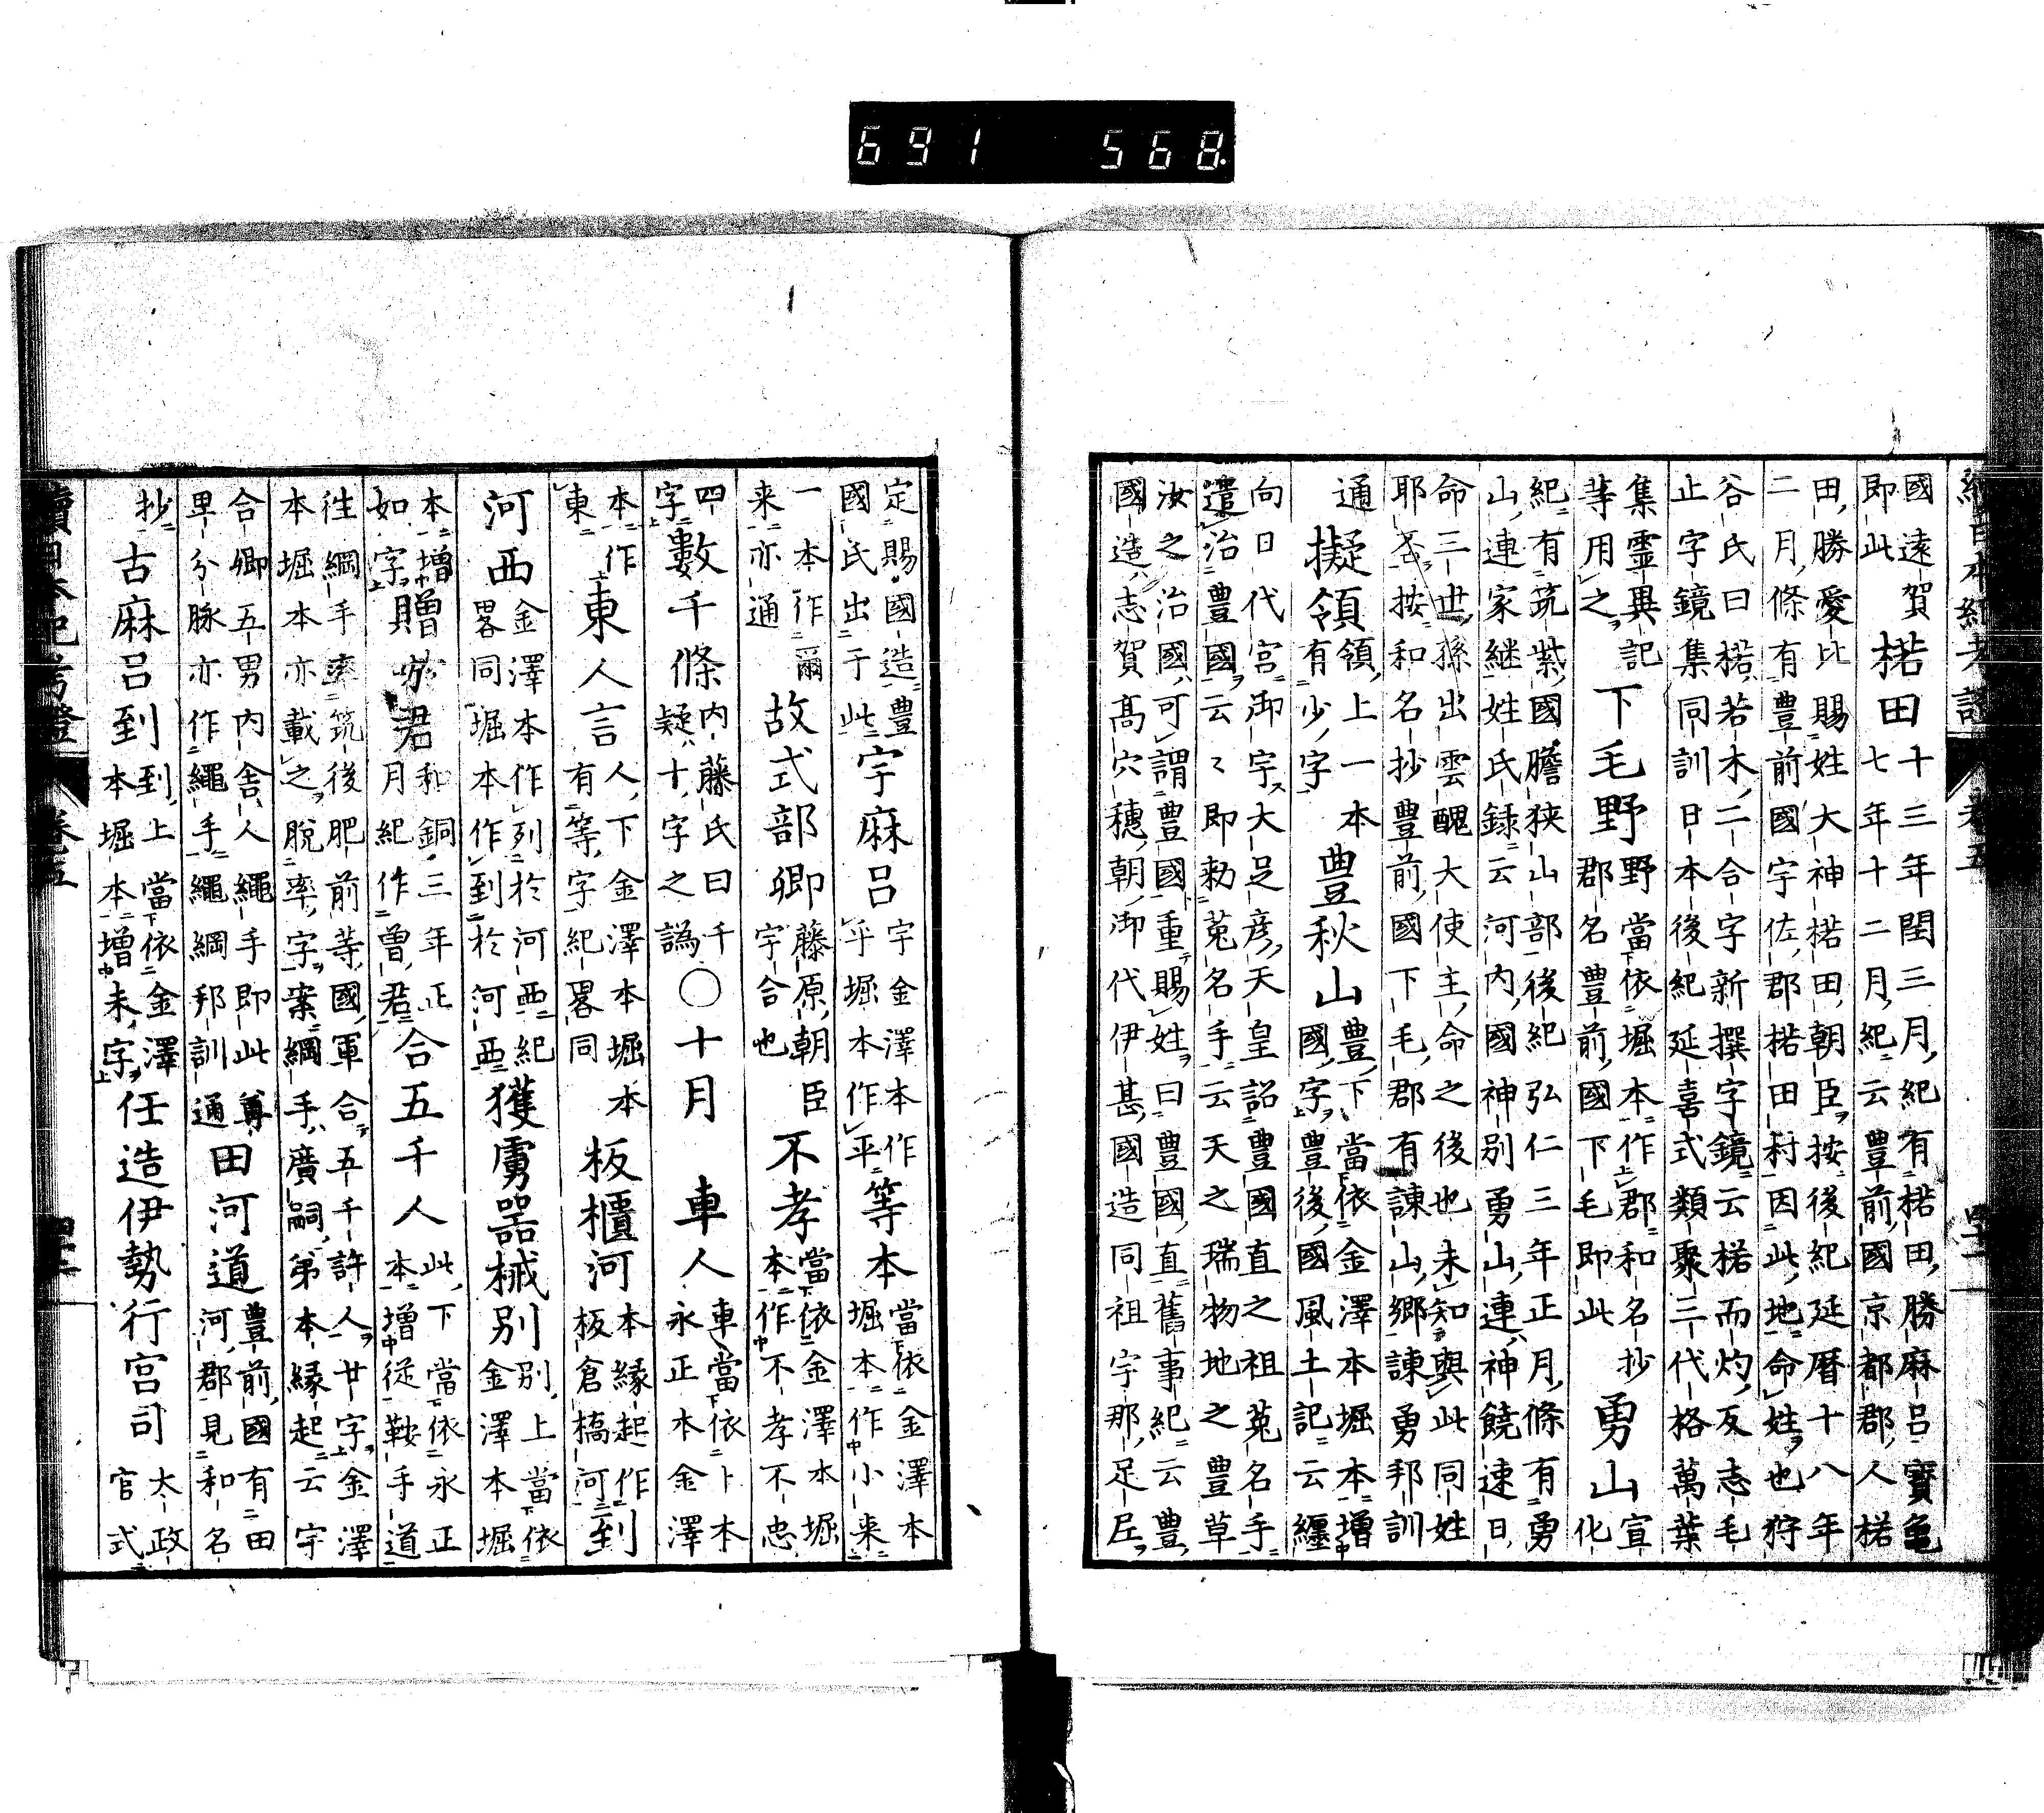 691 568.
國遠賀
即此
楉田
十三年閏三月、紀有楉田、勝麻呂寶龜
七年十二月、紀云豐前、國京都郡、人楉
田、勝愛比賜姓大神楉田、朝臣、按後紀延曆十八年
二月、條有豐前國宇佐、郡楉田村因此地命姓也狩
谷氏曰楉、若木、二合字新撰字鏡云楉而灼、反志毛
止字鏡集同訓日本後紀延喜式類聚三代格萬葉
集靈異記
等用之
下毛野
野當依堀本作郡和名抄
郡名豐前、國下毛即此
勇山
宣
化
紀有筑紫國膽狹山部後紀弘仁三年正月、條有勇
山、連家継姓氏録云河內、國神別勇山、連、神饒速日、
命三世孫出雲醜大使主、命之後也未知與此同姓
耶否按和名抄豐前、國下毛、郡有諫山、鄉諫勇邦訓
通
擬領
領、上一本
有少、字
豊秋山
豊、下當依金澤本堀本增
國、字豐後、國風土記云纏
向日代宮御宇大足彥、天皇詔豐國直之祖菟名手
遣治豐國云〻即勅菟名手云天之瑞物地之豐草
汝之治國、可謂豐國重賜姓曰豐國、直舊事紀云豐、
國造、志賀高穴穗、朝御代伊甚、國造同祖宇那、足尼
定賜國造豊
國氏出于此
宇麻呂
宇金澤本作
乎堀本作平
等本
當依金澤本
堀本作小来
一本作爾
来亦通
故式部卿
藤原、朝臣
宇合也
不孝
當依金澤本堀
本作不孝不忠
四
字
數千條
内藤氏曰千
疑、十、字之譌
○十月
車人
車當依卜本
永正本金澤
本作
東
東人言
人、下金澤本堀本
有等、字紀畧同
板櫃河
本緣起作
板倉橋河
到
河西
金澤本作列於河西紀
畧同堀本作到於河西
獲虜器械別
別、上當依
金澤本堀
本增
如字
贈唹君
和銅三年正
月紀作曾、君
合五千人
此、下當依永正
本增従鞍手道
往綱手率筑後肥前等、國軍合五千許人廿字金澤
本堀本亦載之脫率、字案綱手、廣嗣、弟本緣起云宇
合卿五男内舎人繩手即此尊
里分脉亦作繩手繩綱邦訓通
田河道
豊前、國有田
河、郡見和名
抄
古麻呂到
到、上當依金澤
本堀本增未、字
任造伊勢行宮司
太政
官式
續日本紀考證
卷五